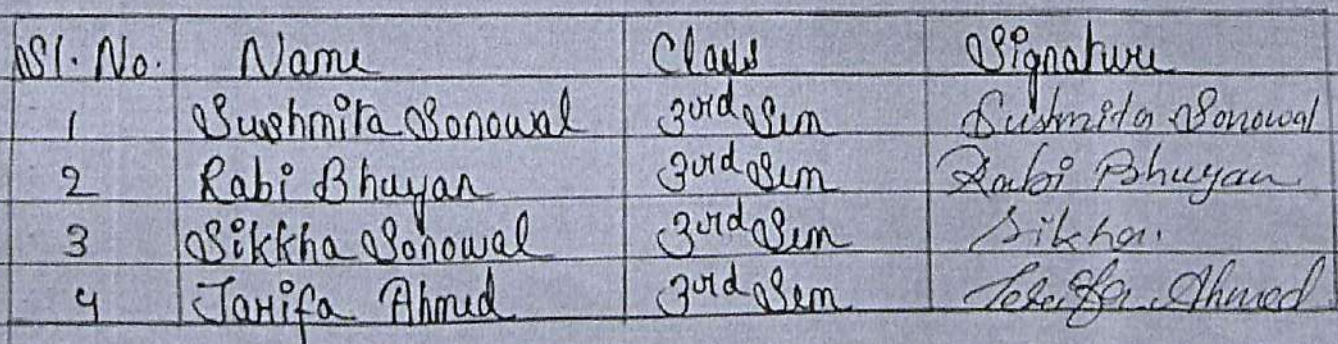 Sl. No. Name Class Signature
1 Sushmita Sonowal 3rd Sem Sushmita Sonowal
2 Rabi Bhuyan 3rd Sem Rabi Bhuyan
3 Sikkha Sonowal 3rd Sem Sikha.
4 Tarifa Ahmed 3rd Sem Ahmed